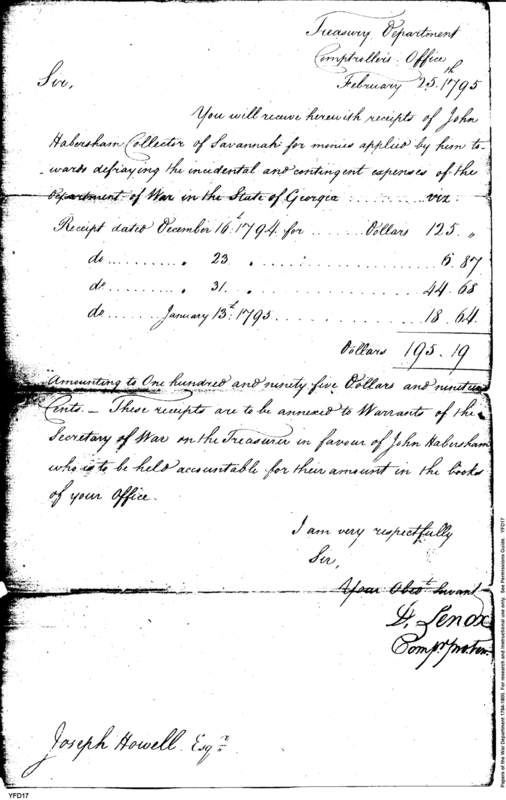 Treasury Department
Comptrollers Office
February 25.th 1795
Sir,
You will receive herewith receipts of John
Habersham Collector of Savannah for monies applied by him to-
-wards defraying the incidental and contingent expenses of the
Department of War in the State of Georgia .......... viz.
Receipt dated December 16.t 1794 for ...... Dollars 125 "
do .......... " 23 " . .................. 6.87
do .......... " 31. .................. 44.68
do ....... January 13.t 1795 .................. 18.64
Dollars 195.19
Amounting to One hundred and ninety five Dollars and nineteen
Cents. — These receipts are to be annexed to Warrants of the
Secretary of War on the Treasurer in favour of John Habersham
who is to be held accountable for their amount in the books
of your Office.
I am very respectfully
Sir,
Your Obed.t Servant
D. Lenox
Comp.r pro tem.
Joseph Howell Esq.r
YFD17
Papers of the War Department 1784-1800. For research and instructional use only. See Permissions Guide. YFD17